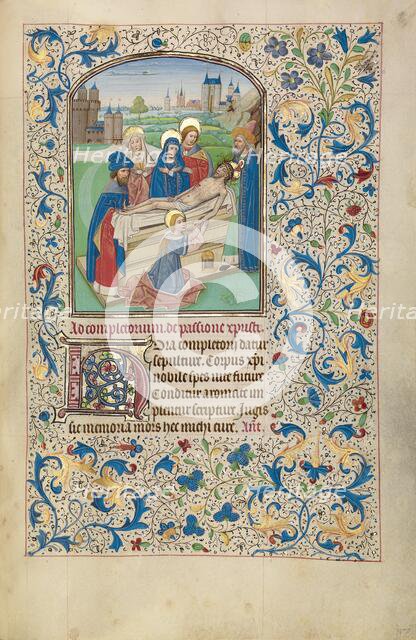 Ad completorium de passione xpristi.
Hora completorij datur
sepulture. Corpus xpi
nobile spes vite future
Conditur aromate im
plentur scripture. Jugis
sit memoria mors hec michi cure. Ant.
Heritage
Images